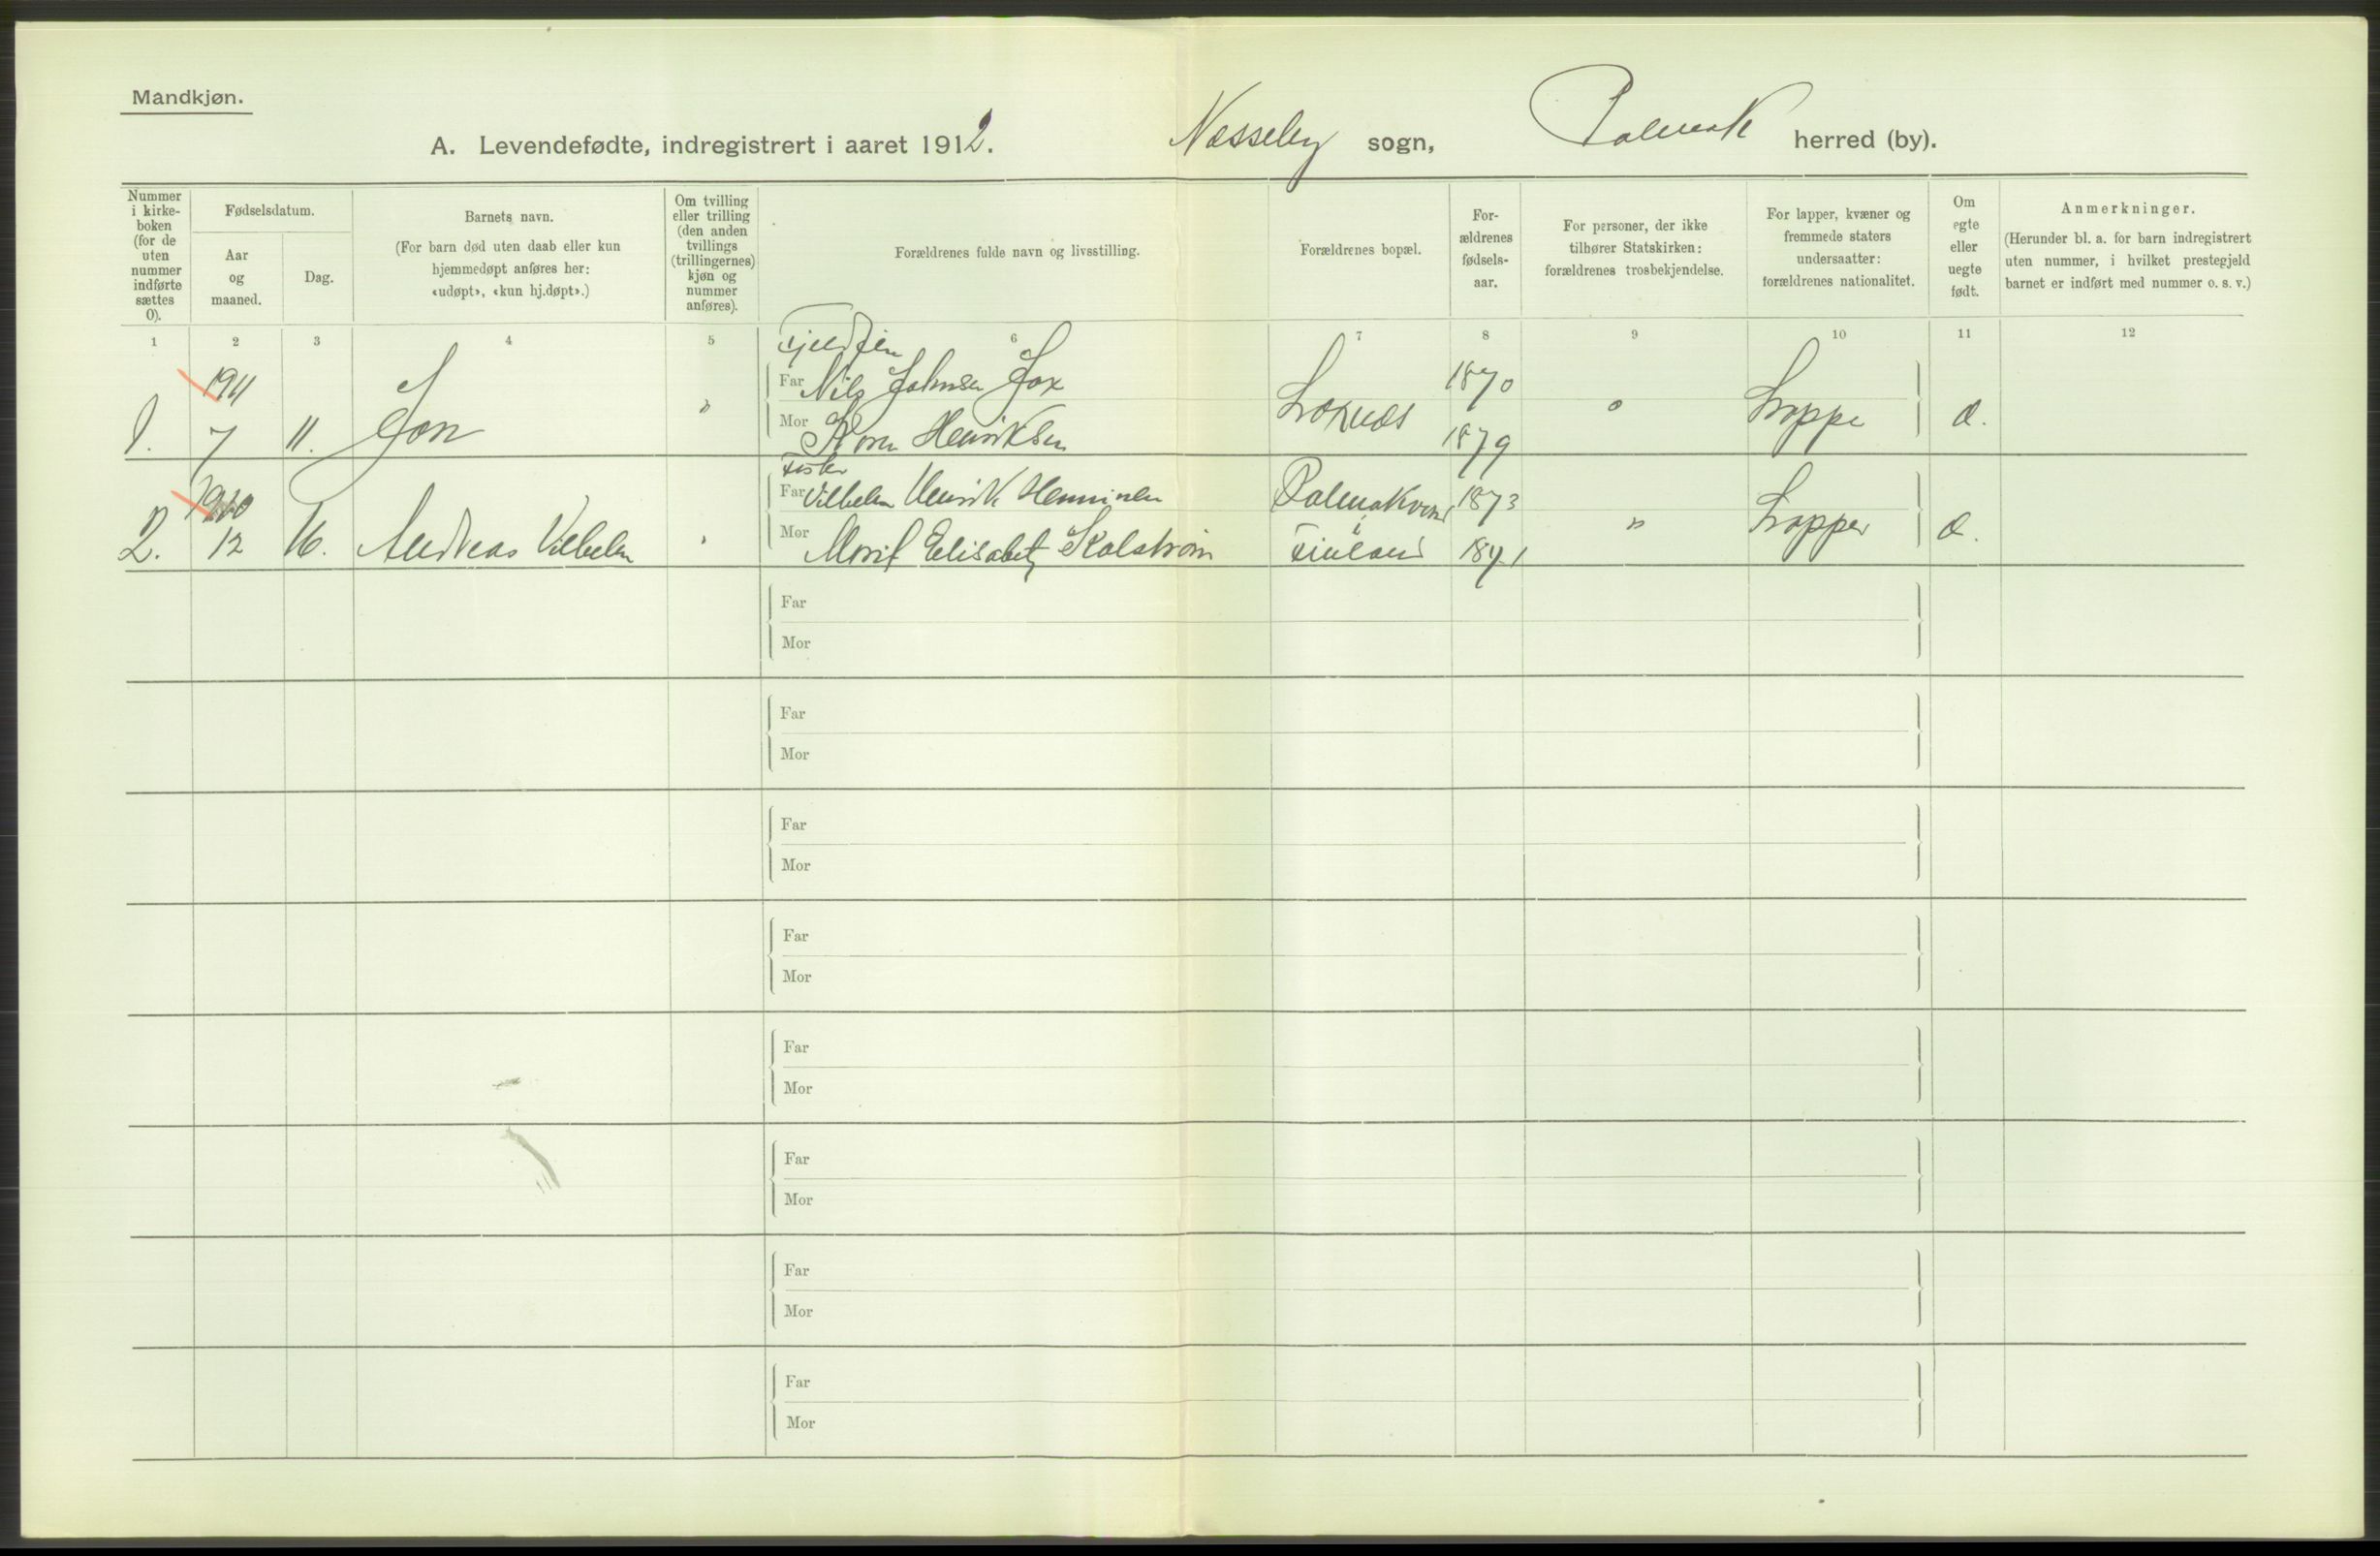 Mandkjøn.
A. Levendefødte, indregistrert i aaret 1912. Næsseby sogn, Polmak herred (by).
Nummer i kirkeboken (for de uten nummer indførte sættes 0).
Fødselsdatum.
Aar og maaned.
Dag.
Barnets navn.
(For barn død uten daab eller kun hjemmedøpt anføres her: «udøpt», «kun hj.døpt».)
Om tvilling eller trilling (den anden tvillings (trillingernes) kjøn og nummer anføres).
Forældrenes fulde navn og livsstilling.
Forældrenes bopæl.
Forældrenes fødselsaar.
For personer, der ikke tilhører Statskirken: forældrenes trosbekjendelse.
For lapper, kvæner og fremmede staters undersaatter: forældrenes nationalitet.
Om egte eller uegte født.
Anmerkninger.
(Herunder bl. a. for barn indregistrert uten nummer, i hvilket prestegjeld barnet er indført med nummer o. s. v.)
1 2 3 4 5 6 7 8 9 10 11 12
Fjeldfin
1911 Far Nils Johnsen 1870
1. 7 11. Jon " Mor Henriksen 1879 Lappe
Fisker
Far Vilhelm Henrik Henninen Polmakvand 1873
2. 12 16. Andreas Vilhelm Mor Marit Elisabet Kalstrøm i Finland 1871 " Lapper
Far
Mor
Far
Mor
Far
Mor
Far
Mor
Far
Mor
Far
Mor
Far
Mor
Far
Mor